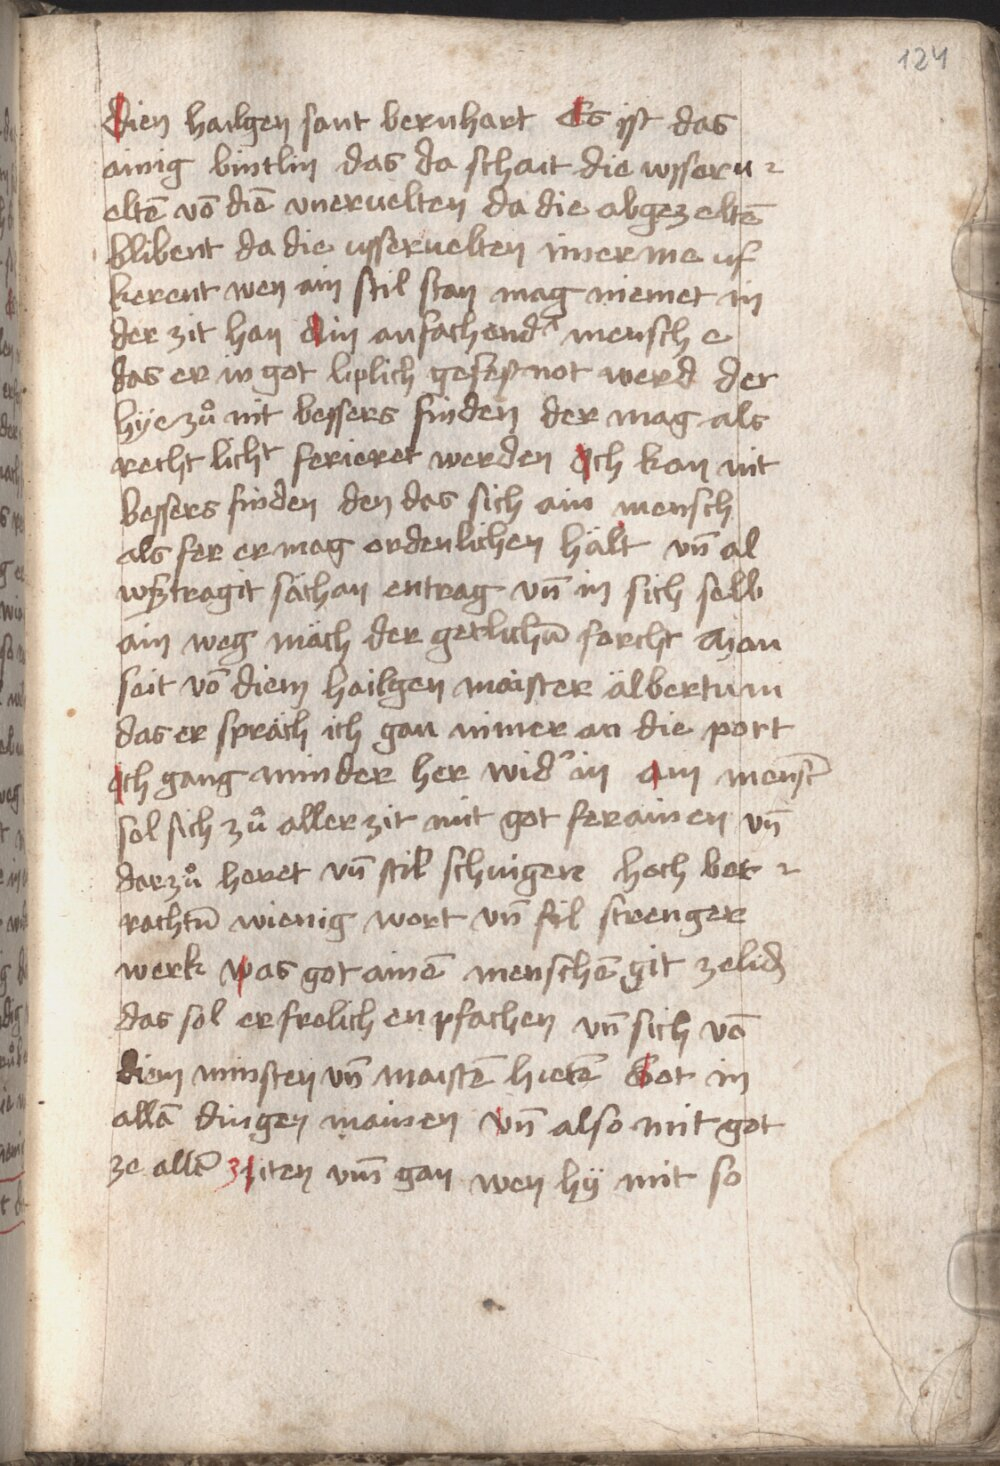 124
Dien hailgen sant bernhart Es ist das
ainig bintlin das da schait die vsseru-
eltē vō diē vneruelten da die abgezeltē
blibent da die vsseruelten imerme uf
kerent wen ain stil stan mag niemet in
der zit han Ain anfachend mensch e
das er in got liplich gefestnot werd der
hye zů nit bessers finden der mag als
recht licht ferieret werden Ich kan nit
bessers finden den das sich ain mensch
als fer er mag ordenlichen hält vn̄ al
sachan entrag vn̄ in sich selb
ain weg mäch der getlichū forcht Man
sait vō diem hailgen maister älbertum
das er spräch ich gan nimer an die port
Ich gang minder her wid in Ain mensc
sol sich zů aller zit mit got ferainen vn̄
darzů heret vn̄ stil schwigen hoch bet-
rachtū wienig wort vn̄ fil strenger
werk Was got ainē menschē git ze lid
das sol er frolich enpfachen vn̄ sich vō
diem minsten vn̄ maistē hietē Got in
allā dingen mainen Vn̄ also mit got
ze allē ziten vm̄ gan wen hÿ mit so